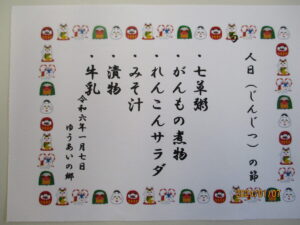 人日（じんじつ）の節
・七草粥
・がんもの煮物
・れんこんサラダ
・みそ汁
・漬物
・牛乳
令和六年一月七日
ゆうあいの郷